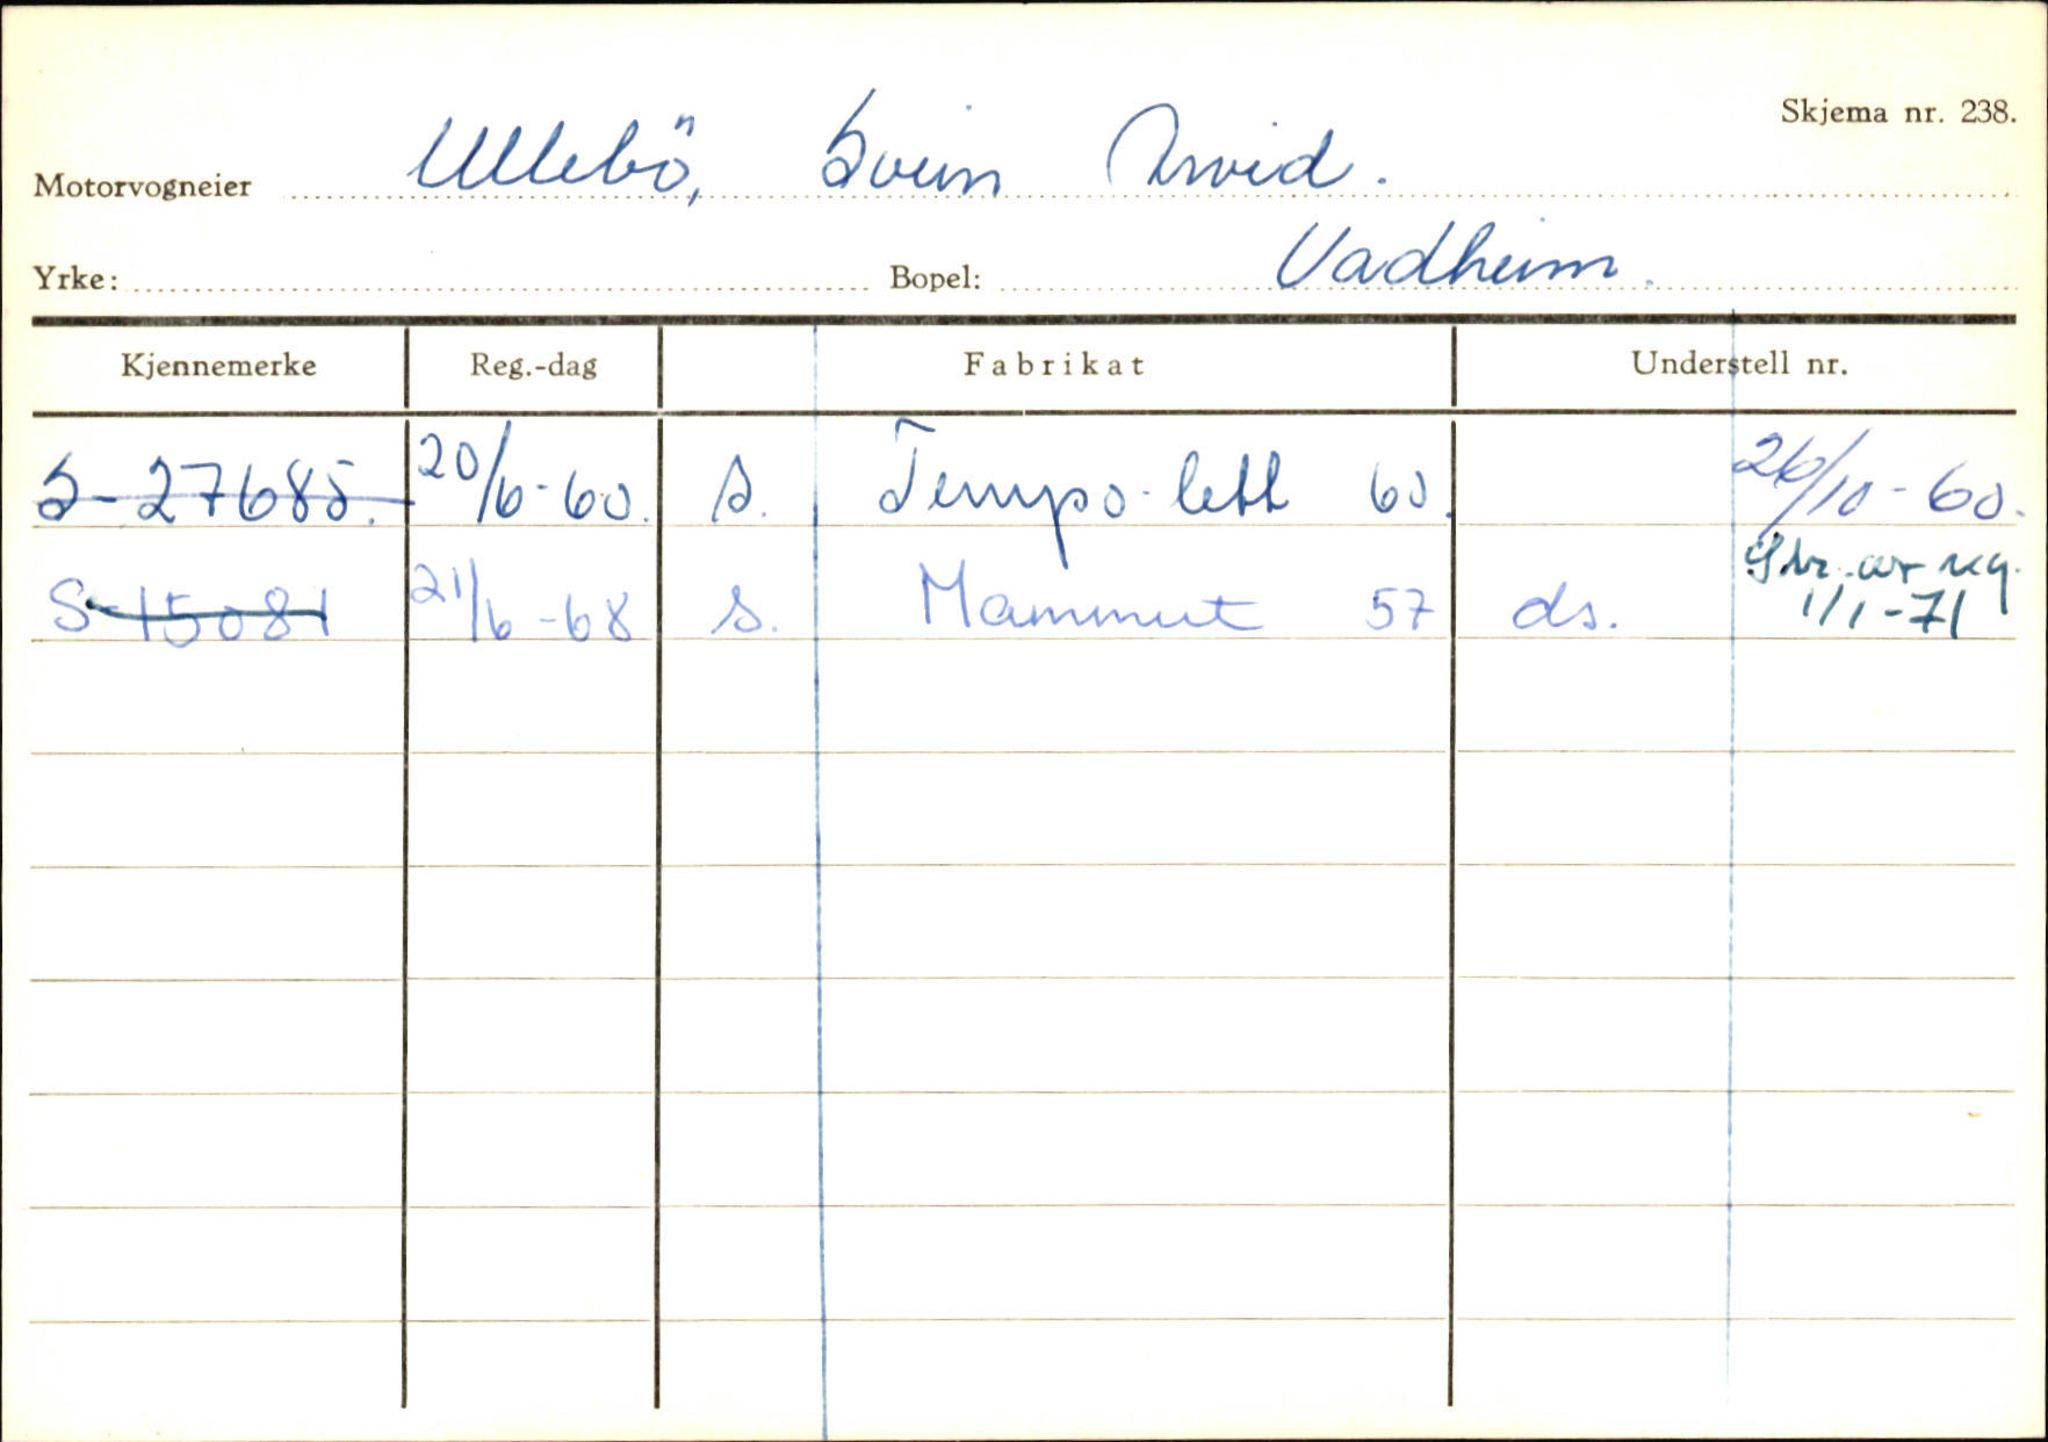 Skjema nr. 238.
Motorvogneier Ullebö, Svein Arvid.
Yrke: Bopel: Vadheim.
Kjennemerke Reg.-dag Fabrikat Understell nr.
S-27685. 20/6-60. s. Tempo lett 60. 26/10-60.
S-15081 21/6-68 s. Mammut 57 ds. Str. av reg.
1/1-71